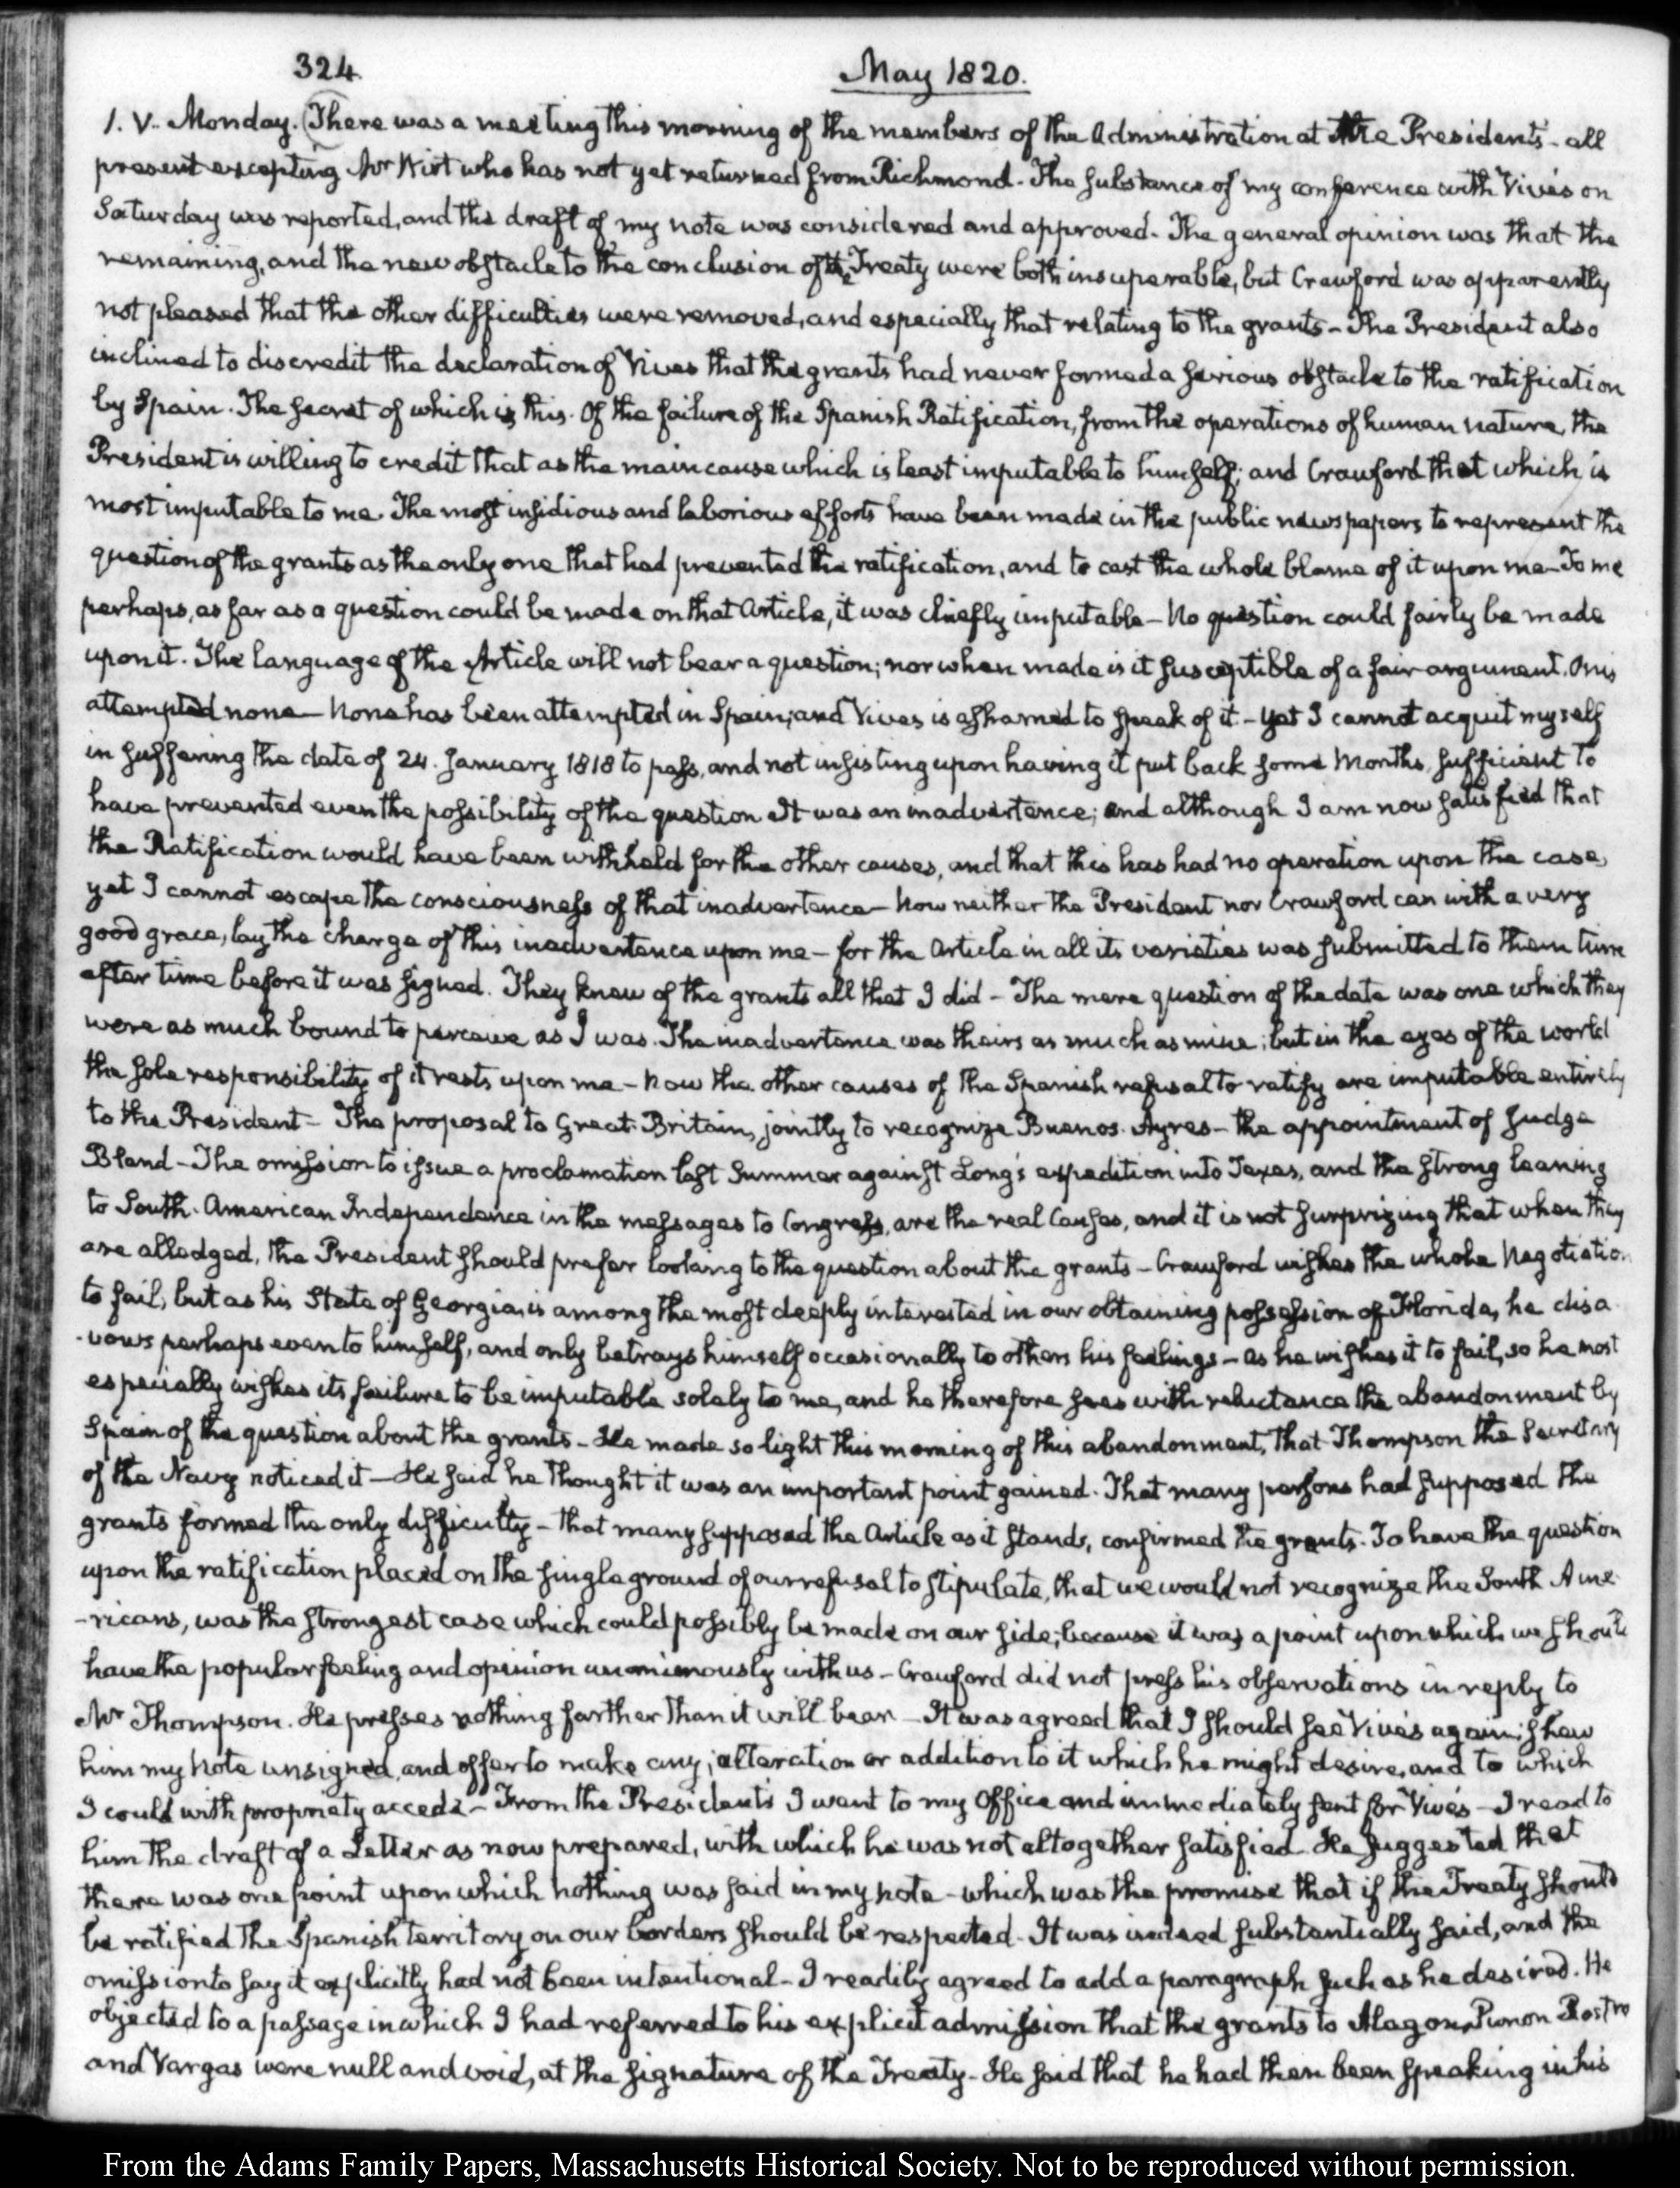 324.
May 1820.
1. V. Monday. There was a meeting this morning of the members of the Administration at the Presidents - all
present excepting Mr Wirt who has not yet returned from Richmond. The substance of my conference with Vivés on
Saturday was reported, and the draft of my note was considered and approved. The general opinion was that the
remaining, and the new obstacle to the conclusion of the Treaty were both insuperable, but Crawford was apparently
not pleased that the other difficulties were removed, and especially that relating to the grants - The President also
inclined to discredit the declaration of Vives that the grants had never formed a serious obstacle to the ratification
by Spain. The secret of which is this. Of the failure of the Spanish Ratification, from the operations of human nature, the
President is willing to credit that as the main cause which is least imputable to himself; and Crawford that which is
most imputable to me. The most insidious and laborious efforts have been made in the public newspapers to represent the
question of the grants as the only one that had prevented the ratification, and to cast the whole blame of it upon me - To me
perhaps, as far as a question could be made on that Article, it was chiefly imputable - No question could fairly be made
upon it. The language of the Article will not bear a question; nor when made is it susceptible of a fair argument. Onis
attempted none - None has been attempted in Spain; and Vives is ashamed to speak of it - Yet I cannot acquit myself
in suffering the date of 24. January 1818 to pass, and not insisting upon having it put back some Months, sufficient to
have prevented even the possibility of the question It was an inadvertence; and although I am now satisfied that
the Ratification would have been withheld for the other causes, and that this has had no operation upon the case,
yet I cannot escape the consciousness of that inadvertence - Now neither the President nor Crawford can with a very
good grace, lay the charge of this inadvertence upon me - for the Article in all its varieties was submitted to them time
after time before it was signed. They knew of the grants all that I did - The mere question of the date was one which they
were as much bound to perceive as I was. The inadvertence was theirs as much as mine; but in the eyes of the world
the sole responsibility of it rests upon me - Now the other causes of the Spanish refusal to ratify are imputable entirely
to the President - The proposal to Great-Britain, jointly to recognize Buenos-Ayres - the appointment of Judge
Bland - The omission to issue a proclamation last Summer against Long's expedition into Texas, and the strong leaning
to South-American Independence in the messages to Congress, are the real Causes, and it is not surprizing that when they
are alledged, the President should prefer looking to the question about the grants - Crawford wishes the whole Negotiation
to fail, but as his State of Georgia, is among the most deeply interested in our obtaining possession of Florida, he disa
-vows perhaps even to himself, and only betrays himself occasionally to others his feelings - As he wishes it to fail, so he most
especially wishes its failure to be imputable solely to me, and he therefore sees with reluctance the abandonment by
Spain of the question about the grants - He made so light this morning of this abandonment, that Thompson the Secretary
of the Navy noticed it - He said he thought it was an important point gained. That many persons had supposed the
grants formed the only difficulty - that many supposed the Article as it stands, confirmed the grants. To have the question
upon the ratification placed on the single ground of our refusal to stipulate, that we would not recognize the South Ame
-ricans, was the strongest case which could possibly be made on our side; because it was a point upon which we should
have the popular feeling and opinion unanimously with us - Crawford did not press his observations in reply to
Mr Thompson. He presses nothing farther than it will bear - It was agreed that I should see Vivés again; shew
him my Note unsigned, and offer to make any alteration or addition to it which he might desire, and to which
I could with propriety accede - From the Presidents I went to my Office and immediately sent for Vivés - I read to
him the draft of a Letter as now prepared, with which he was not altogether satisfied. He suggested that
there was one point upon which nothing was said in my note - which was the promise that if the Treaty should
be ratified the Spanish territory on our borders should be respected. It was indeed substantially said, and the
omission to say it explicitly had not been intentional - I readily agreed to add a paragraph such as he desired. He
objected to a passage in which I had referred to his explicit admission that the grants to Alagon, Punon Rostro
and Vargas were null and void, at the signature of the Treaty - He said that he had then been speaking in his
From the Adams Family Papers, Massachusetts Historical Society. Not to be reproduced without permission.